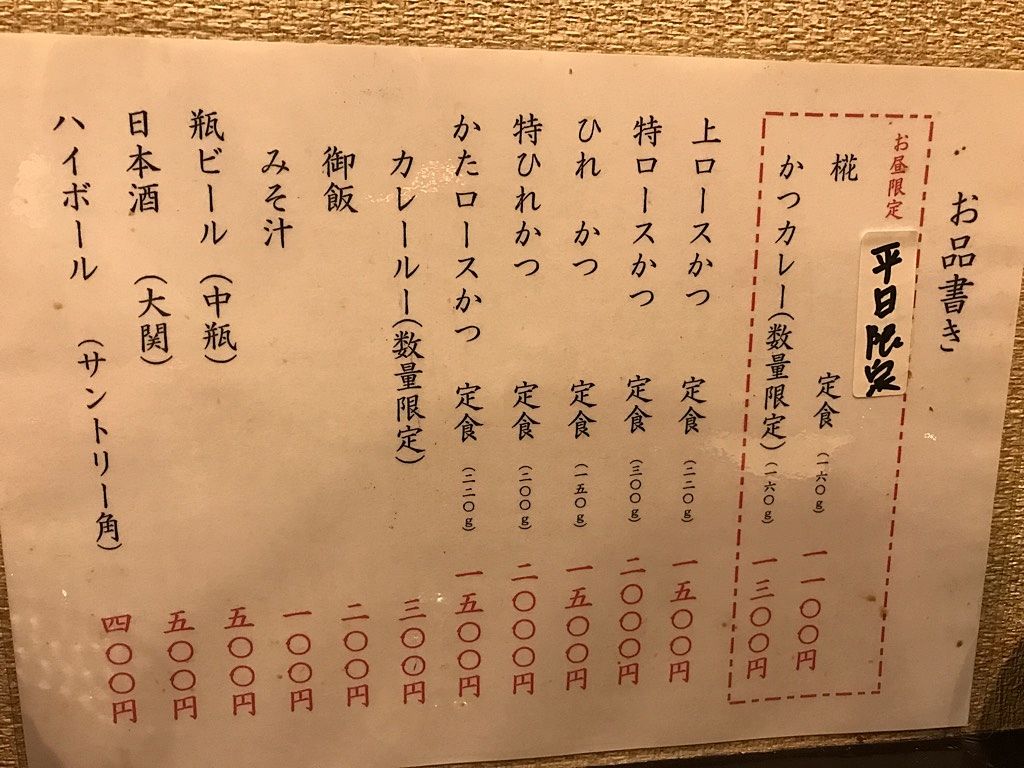 お品書き
お昼限定 平日限定
椛 定食 (一六〇g) 一一〇〇円
かつカレー(数量限定) (一六〇g) 一三〇〇円
上ロースかつ 定食 (二二〇g) 一五〇〇円
特ロースかつ 定食 (三〇〇g) 二〇〇〇円
ひれ かつ 定食 (一五〇g) 一五〇〇円
特ひれかつ 定食 (二〇〇g) 二〇〇〇円
かたロースかつ 定食 (二二〇g) 一五〇〇円
カレールー(数量限定) 三〇〇円
御飯 二〇〇円
みそ汁 一〇〇円
瓶ビール (中瓶) 五〇〇円
日本酒 (大関) 五〇〇円
ハイボール (サントリー角) 四〇〇円